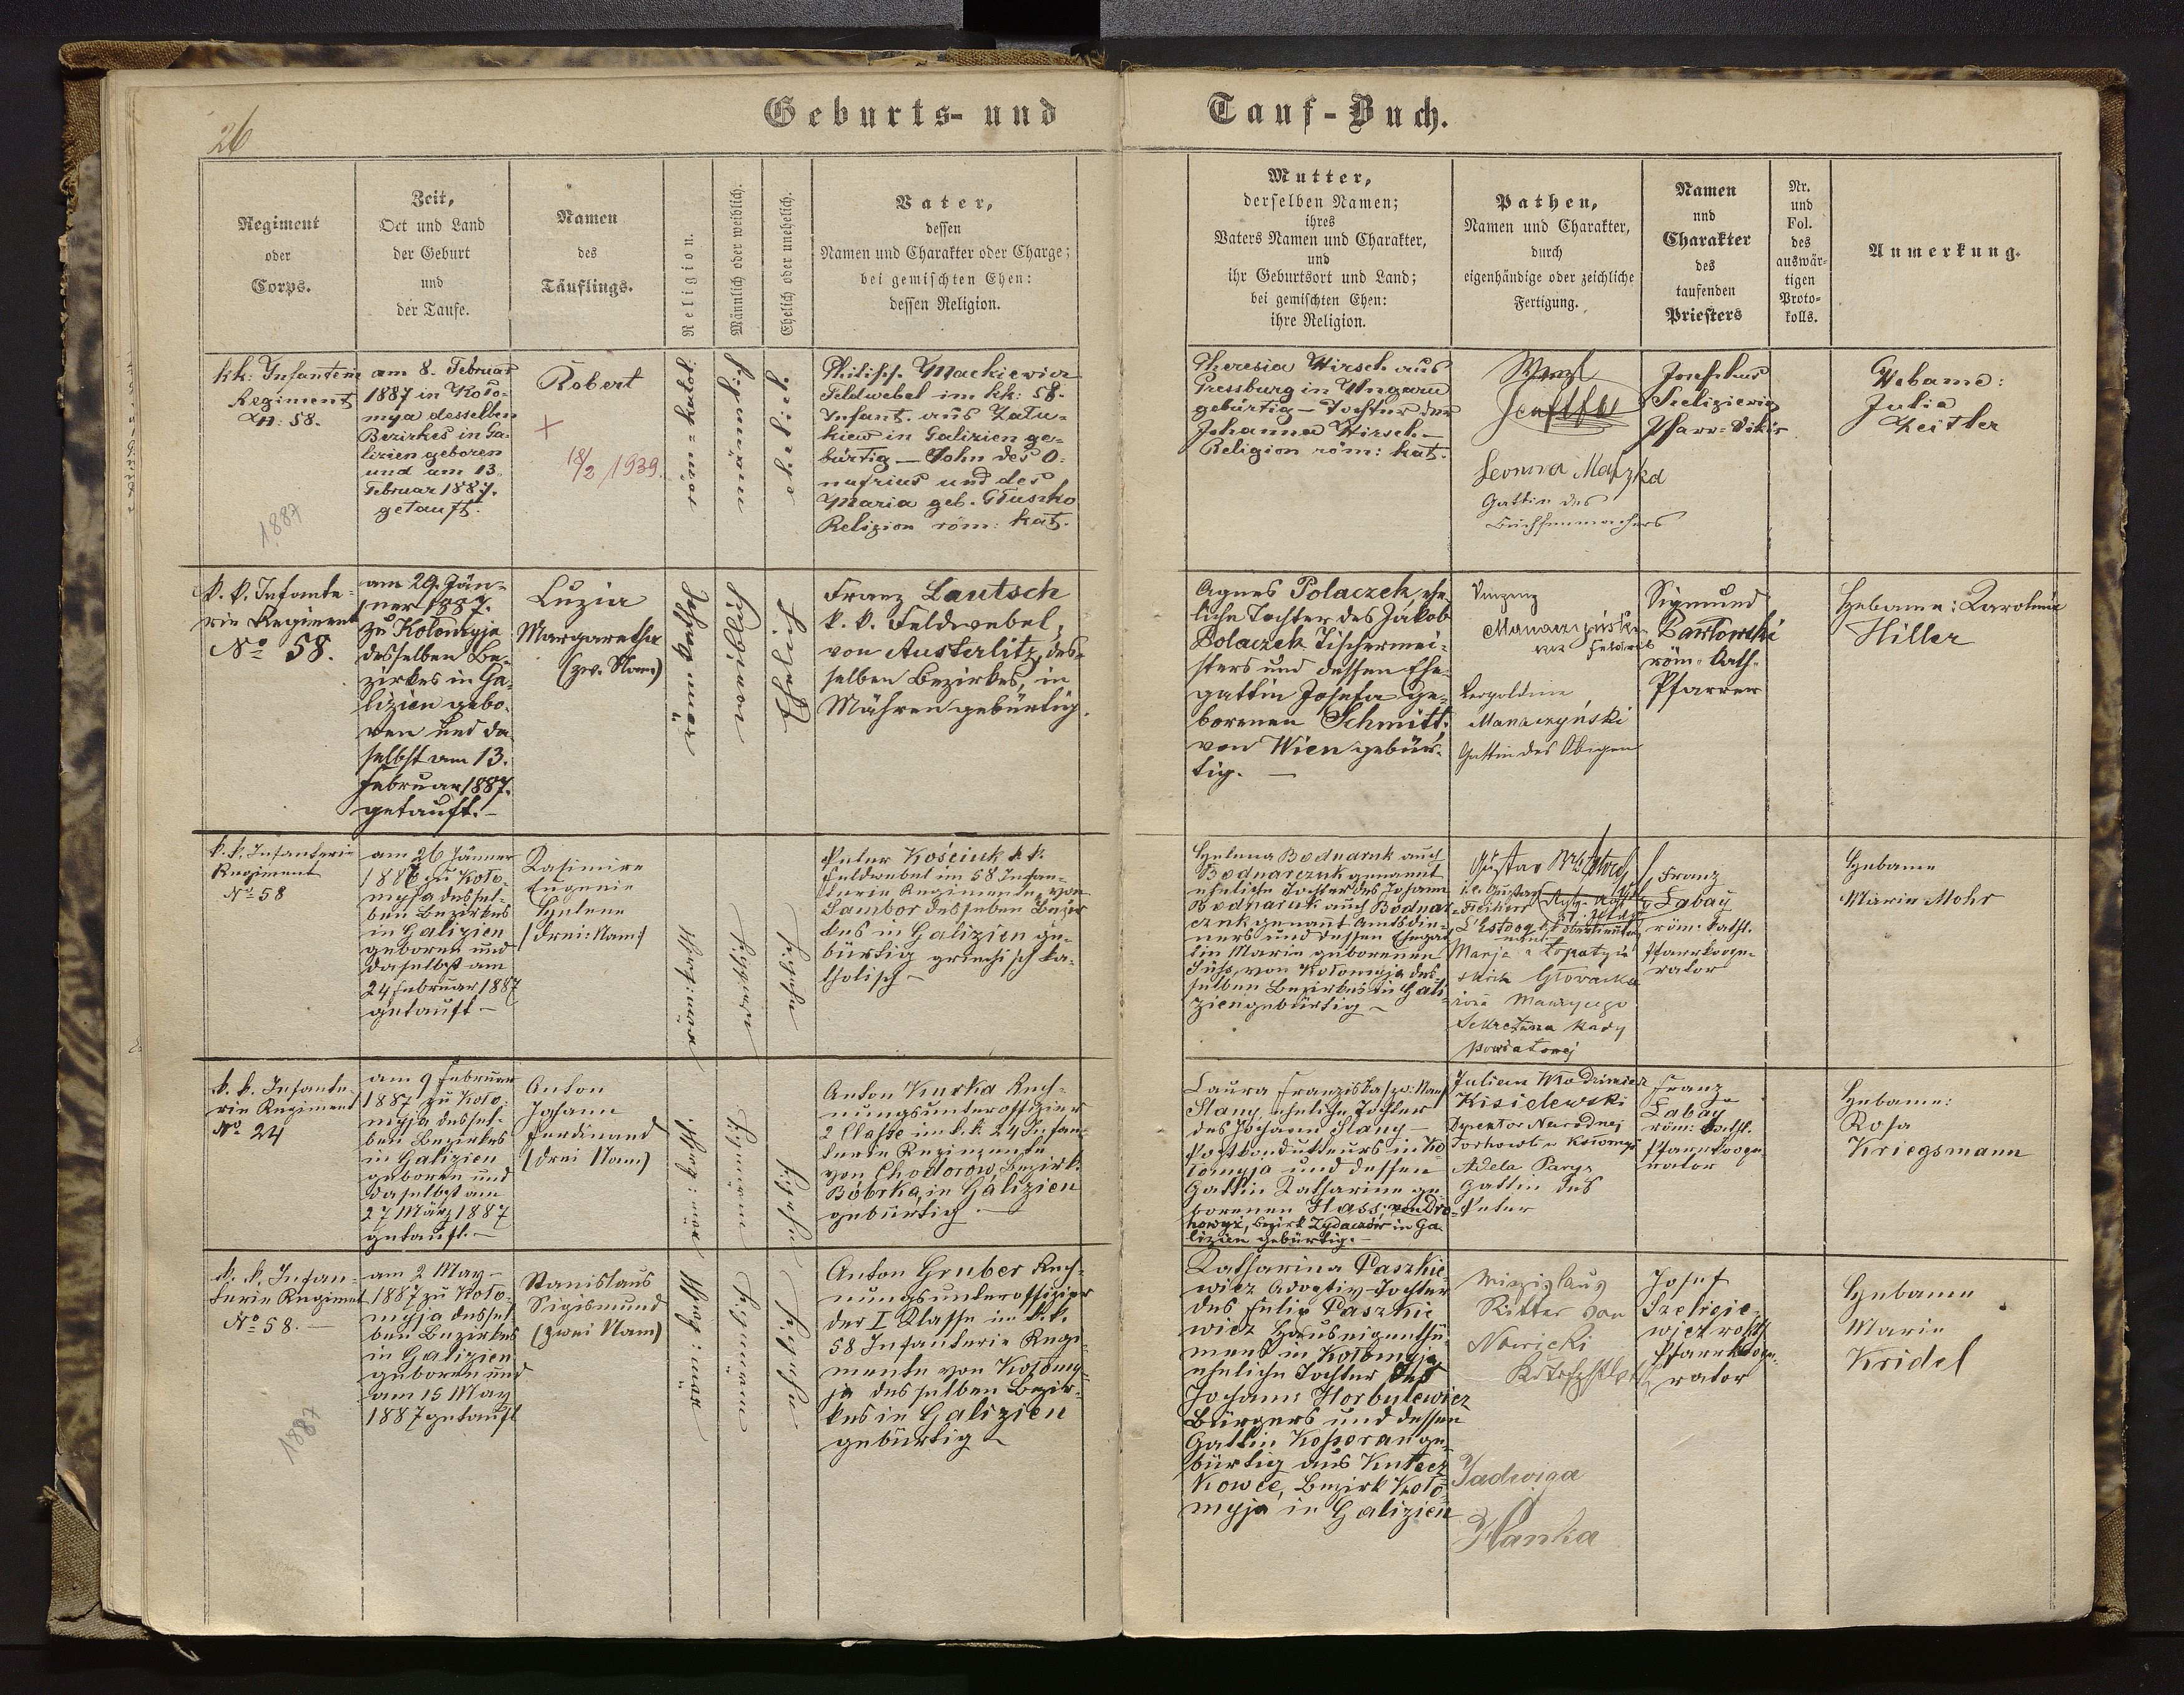 26
Geburts- und Tauf-Buch.
Regiment
oder
Corps.
Zeit,
Ort und Land
der Geburt
und
der Taufe.
Namen
des
Täuflings.
Religion.
Männlich oder weiblich.
Ehelich oder unehelich.
Vater,
dessen
Namen und Charakter oder Charge;
bei gemischten Ehen:
dessen Religion.
Mutter,
derselben Namen;
ihres
Vaters Namen und Charakter,
und
ihr Geburtsort und Land;
bei gemischten Ehen:
ihre Religion.
Pathen,
Namen und Charakter,
durch
eigenhändige oder zeichliche
Fertigung.
Namen
und
Charakter
des
taufenden
Priesters
Nr.
und
Fol.
des
auswär-
tigen
Proto-
kolls.
Anmerkung.
kk: Infanterie
Regiment
N: 58.
am 8. Februar
1887 in Koło-
mya desselben
Bezirkes in Ga-
lizien geboren
und am 13.
Februar 1887.
getauft.
1887
Robert
+
18/2 1939.
Philipp Mackiewicz
Feldwebel im kk: 58.
Infant. aus Zału-
kiew in Galizien ge-
bürtig – Sohn des O-
nufrius und der
Maria geb. Głuszko
Religion röm: kat.
Theresia Hirsch aus
Pressburg in Ungarn
gebürtig – Tochter der
Johanna Hirsch –
Religion röm: kat.
Wenzl
Leonora Matzka
Gattin des
Büchsenmachers
Josephus
Szeligiewicz
Pfarr-Vikär
Hebame:
Julia
Zeitler
k. k. Infante-
rie Regiment
No 58.
am 29. Jän-
ner 1887.
zu Kolomyja
desselben Be-
zirkes in Ga-
lizien gebo-
ren und da-
selbst am 13.
Februar 1887.
getauft. –
Luzia
Margaretha
(zw. Nam)
Franz Lautsch
k. k. Feldwebel,
von Austerlitz, des-
selben Bezirkes, in
Mähren gebürtig.
Agnes Polaczek, ehe-
liche Tochter des Jakob
Polaczek Tischermei-
sters und dessen Ehe-
gattin Josefa ge-
borenen Schmitt,
von Wien gebür-
tig. –
Vinzenz
Manaczyński
Leopoldine
Manaczyński
Gattin des Obigen
Sigmund
Pawłowski
röm. Kath.
Pfarrer
Hebame: Karolina
Hiller
k. k. Infanterie
Regiment
No 58
am 26 Jänner
1886 zu Koło-
myja dessel-
ben Bezirkes
in Galizien
geboren und
daselbst am
24 Februar 1887
getauft –
Kasimira
Eugenie
Helene
(drei: Nam)
Peter Kościuk k. k.
Feldwebel im 58 Infan-
terie Regimente, von
Sambor desselben Bezir-
kes in Galizien ge-
bürtig griechisch ka-
tholisch –
Helena Bodnaruk auch
Bodnarczuk genannt
eheliche Tochter des Johann
Bodnaruk auch Bodnar-
czuk genannt Amtsdie-
ners und dessen Ehegat-
tin Maria geborenen
Süss, von Kołomyja des-
selben Bezirkes in Gali-
zien gebürtig –
Marya z Łopatyń-
skich Głowacka
żona Maurycego
Sekretarza Rady
powiatowej
Franz
Łabay
röm: kath.
Pfarrkoope-
rator
Hebame
Marie Mohr
k. k. Infante-
rie Regiment
No 24
am 9 Februar
1887 zu Koło-
myja dessel-
ben Bezirkes
in Galizien
geboren und
daselbst am
27 März 1887
getauft. –
Anton
Johann
Ferdinand
(drei Nam)
Anton Kurka Rech-
nungsunteroffizier
2 Classe im k. k. 24 Infan-
terie Regimente
von Chodorow, Bezirk
Bóbrka, in Galizien
gebürtig –
Laura Franziska (zw: Nam)
Slany, eheliche Tochter
des Johann Slany –
Postkondukteurs in Ko-
lomyja und dessen
Gattin Katharina ge-
borenen Hass; von Dro-
howyż, Bezirk Żydaczów in Ga-
lizien gebürtig. –
Julian Włodzimierz
Kisielewski
Dyrektor Narodnej
Torhowli w Kołomyi
Adela
Gattin des
Peter
Franz
Łabay
röm: kath.
Pfarrkoope-
rator
Hebame:
Rosa
Kriegsmann
k. k. Infan-
terie Regiment
No 58. –
am 2 May –
1887 zu Koło-
myja dessel-
ben Bezirkes
in Galizien
geboren und
am 15 May
1887 getauft
1887
Stanislaus
Sigismund
(zwei Nam)
Anton Gruber Rech-
nungsunteroffizier
der I Klasse im k. k.
58 Infanterie Regi-
mente von Kołomy-
ja desselben Bezir-
kes in Galizien
gebürtig –
Katharina Paszkie-
wicz Adoptiv-Tochter
des Felix Paszkie-
wicz Hauseigenthü-
mers in Kołomyja
eheliche Tochter des
Johann Horbulewicz
Bürgers und dessen
Gattin ge-
bürtig aus
kowce, Bezirk Koło-
myja in Galizien
Miezislaus
Ritter von
Nowicki
Jadwiga
Hanka
Josef
Szeligie-
wicz
Pfarrkoope-
rator
Hebame
Marie
Kridel